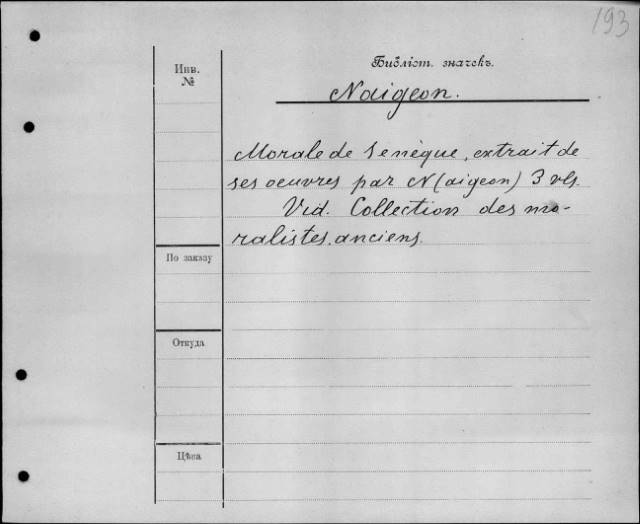 193
Библіот. значекъ.
Инв.
№
Naigeon.
Morale de Senèque, extrait de
ses oeuvres par N(aigeon) 3 vls.
Vid. Collection des mo-
ralistes anciens.
По заказу
Откуда
Цѣна